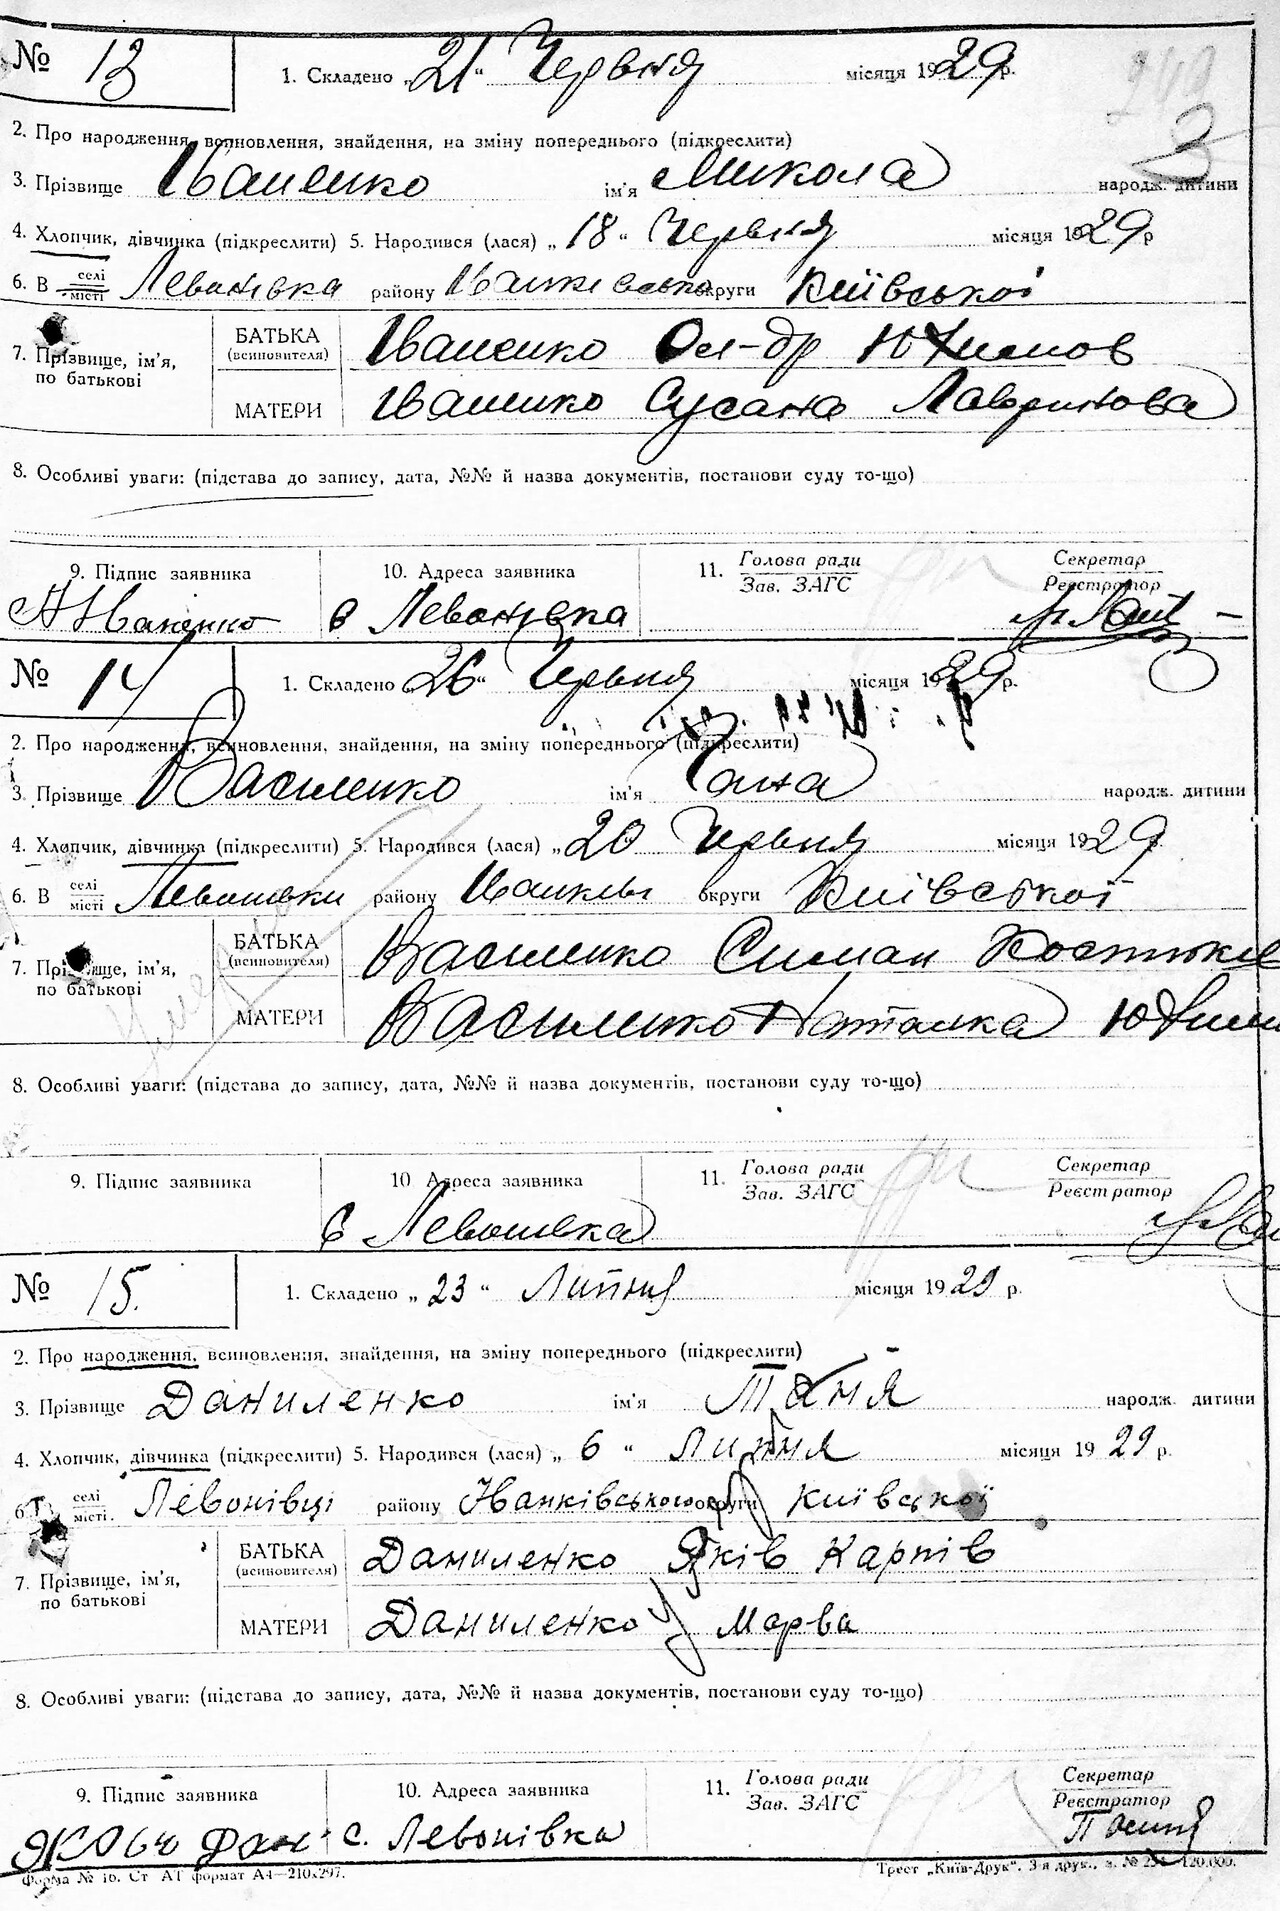 № 13 1. Складено „21“ Червня місяця 1929 р.
2. Про народження, всиновлення, знайдення, на зміну попереднього (підкреслити)
3. Прізвище Іваненко ім'я Микола народж. дитини
4. Хлопчик, дівчинка (підкреслити) 5. Народився (лася) „18“ Червня місяця 1929 р
6. В селі місті Левонівка району округи Київської
7. Прізвище, ім'я, по батькові
БАТЬКА (всиновителя) Іваненко Ол-др Юхимов
МАТЕРИ Іваненко Сусана Лавринова
8. Особливі уваги: (підстава до запису, дата, №№ й назва документів, постанови суду то-що)
9. Підпис заявника 10. Адреса заявника 11. Голова ради Зав. ЗАГС Секретар Реєстратор
А Іваненко с Левонівка
№ 14 1. Складено „26“ Червня місяця 1929 р.
2. Про народження, всиновлення, знайдення, на зміну попереднього (підкреслити)
3. Прізвище Василенко ім'я народж. дитини
4. Хлопчик, дівчинка (підкреслити) 5. Народився (лася) „20 Червня місяця 1929
6. В селі місті Левонівки району округи Київської
7. Прізвище, ім'я, по батькові
БАТЬКА (всиновителя) Василенко Симан
МАТЕРИ Василенко Наталка
8. Особливі уваги: (підстава до запису, дата, №№ й назва документів, постанови суду то-що)
9. Підпис заявника 10 Адреса заявника 11. Голова ради Зав. ЗАГС Секретар Реєстратор
с Левонівка
№ 15. 1. Складено „23“ Липня місяця 1929 р.
2. Про народження, всиновлення, знайдення, на зміну попереднього (підкреслити)
3. Прізвище Даниленко ім'я Таня народж. дитини
4. Хлопчик, дівчинка (підкреслити) 5. Народився (лася) „6“ Липня місяця 1929 р.
6. В селі місті. Левонівці району Іванківського округи Київської
7. Прізвище, ім'я, по батькові
БАТЬКА (всиновителя) Даниленко Яків Карпів
МАТЕРИ Даниленко Марва
8. Особливі уваги: (підстава до запису, дата, №№ й назва документів, постанови суду то-що)
9. Підпис заявника 10. Адреса заявника 11. Голова ради Зав. ЗАГС Секретар Реєстратор
с. Левонівка
Форма № 16. Ст АТ формат А4—210х297. Трест „Київ-Друк“. 3-я друк., з. № 120.000.